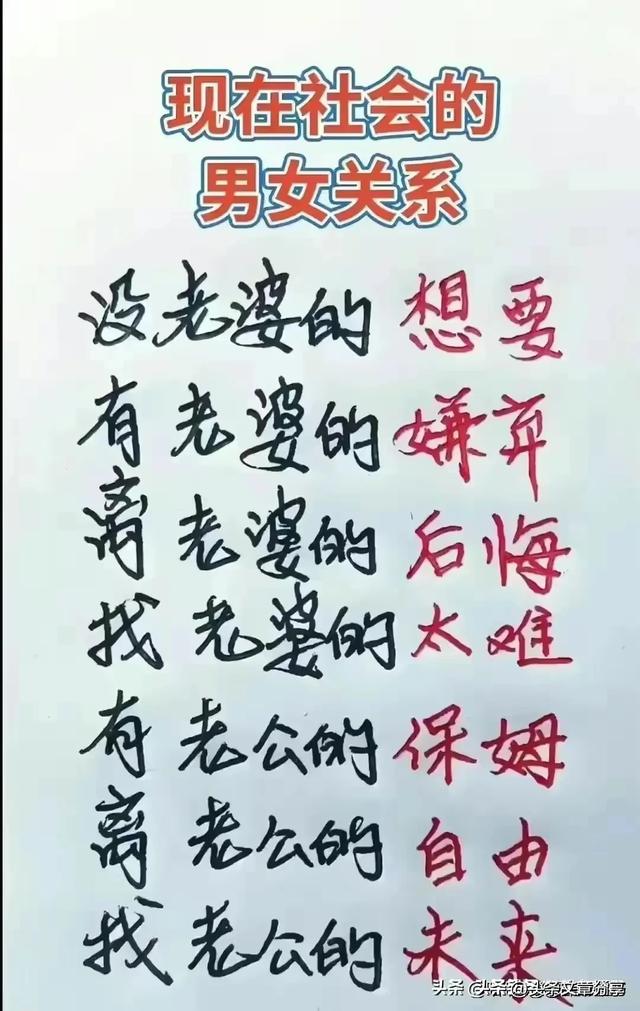 现在社会的
男女关系
没老婆的想要
有老婆的嫌弃
离老婆的后悔
找老婆的太难
有老公的保姆
离老公的自由
找老公的未来